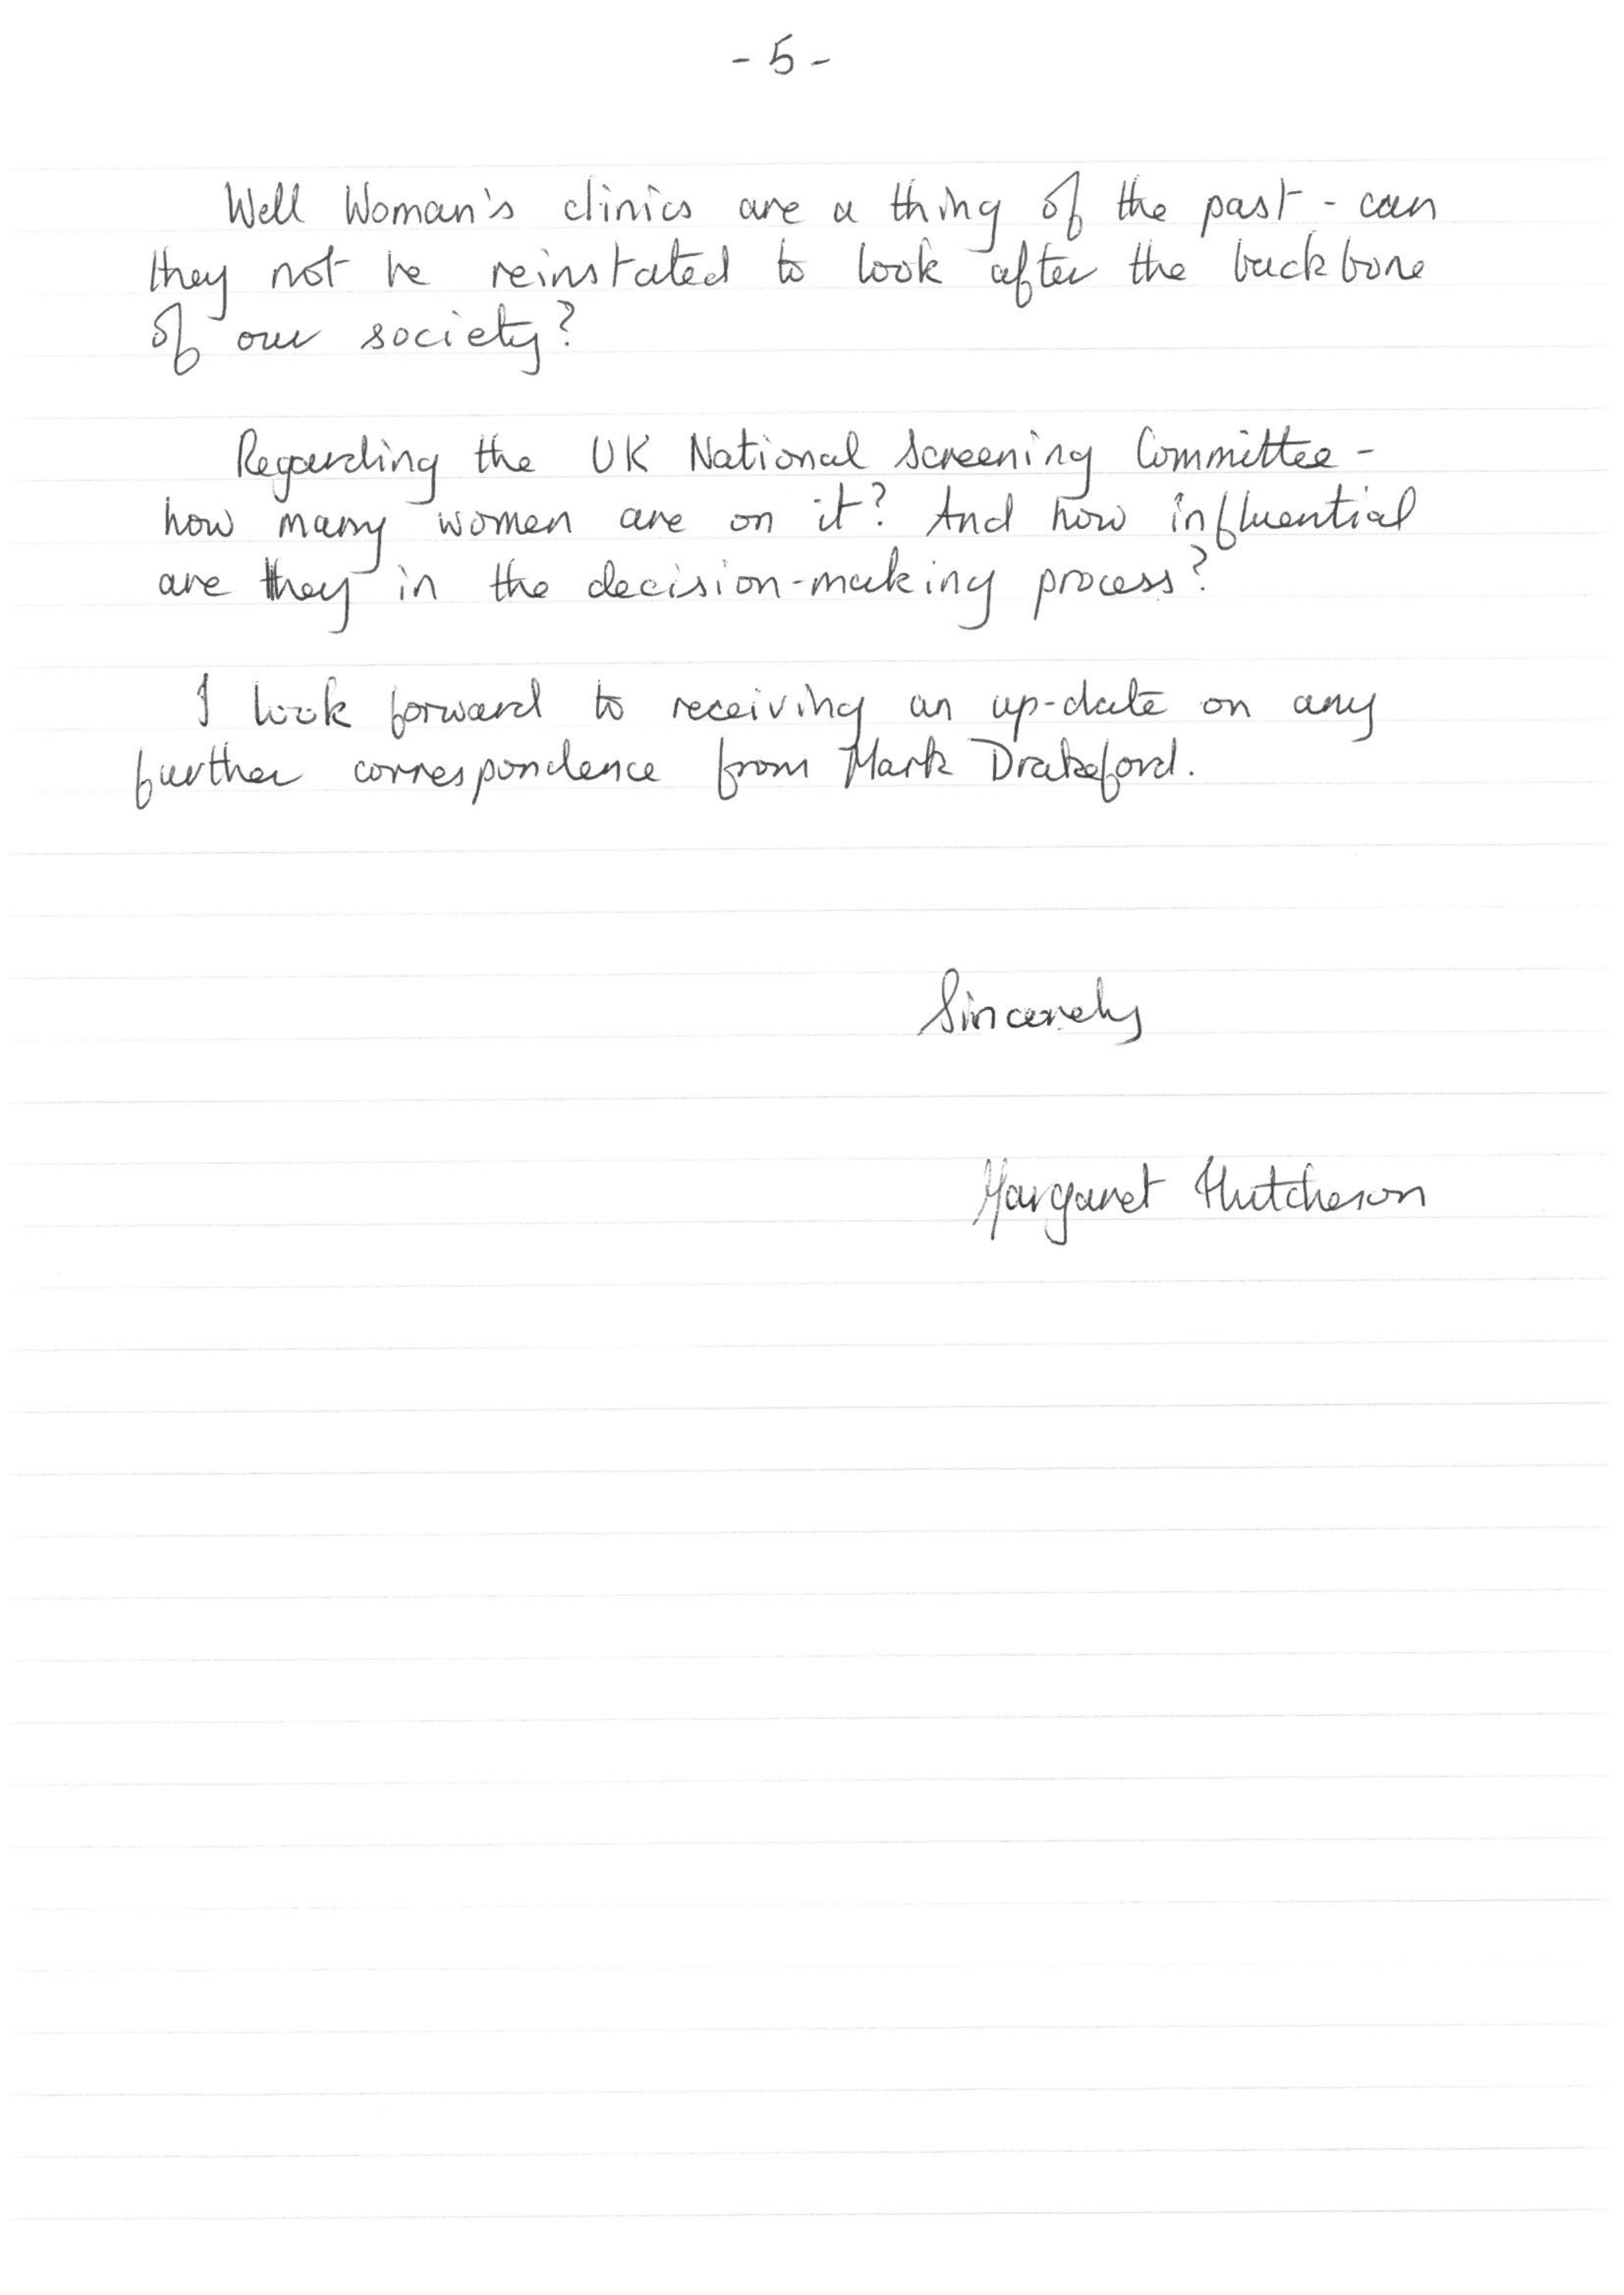 - 5 -
Well Woman's clinics are a thing of the past - can
they not be reinstated to look after the backbone
of our society?
Regarding the UK National Screening Committee -
how many women are on it? And how influential
are they in the decision-making process?
I look forward to receiving an up-date on any
further correspondence from Mark Drakeford.
Sincerely
Margaret Hutcheson